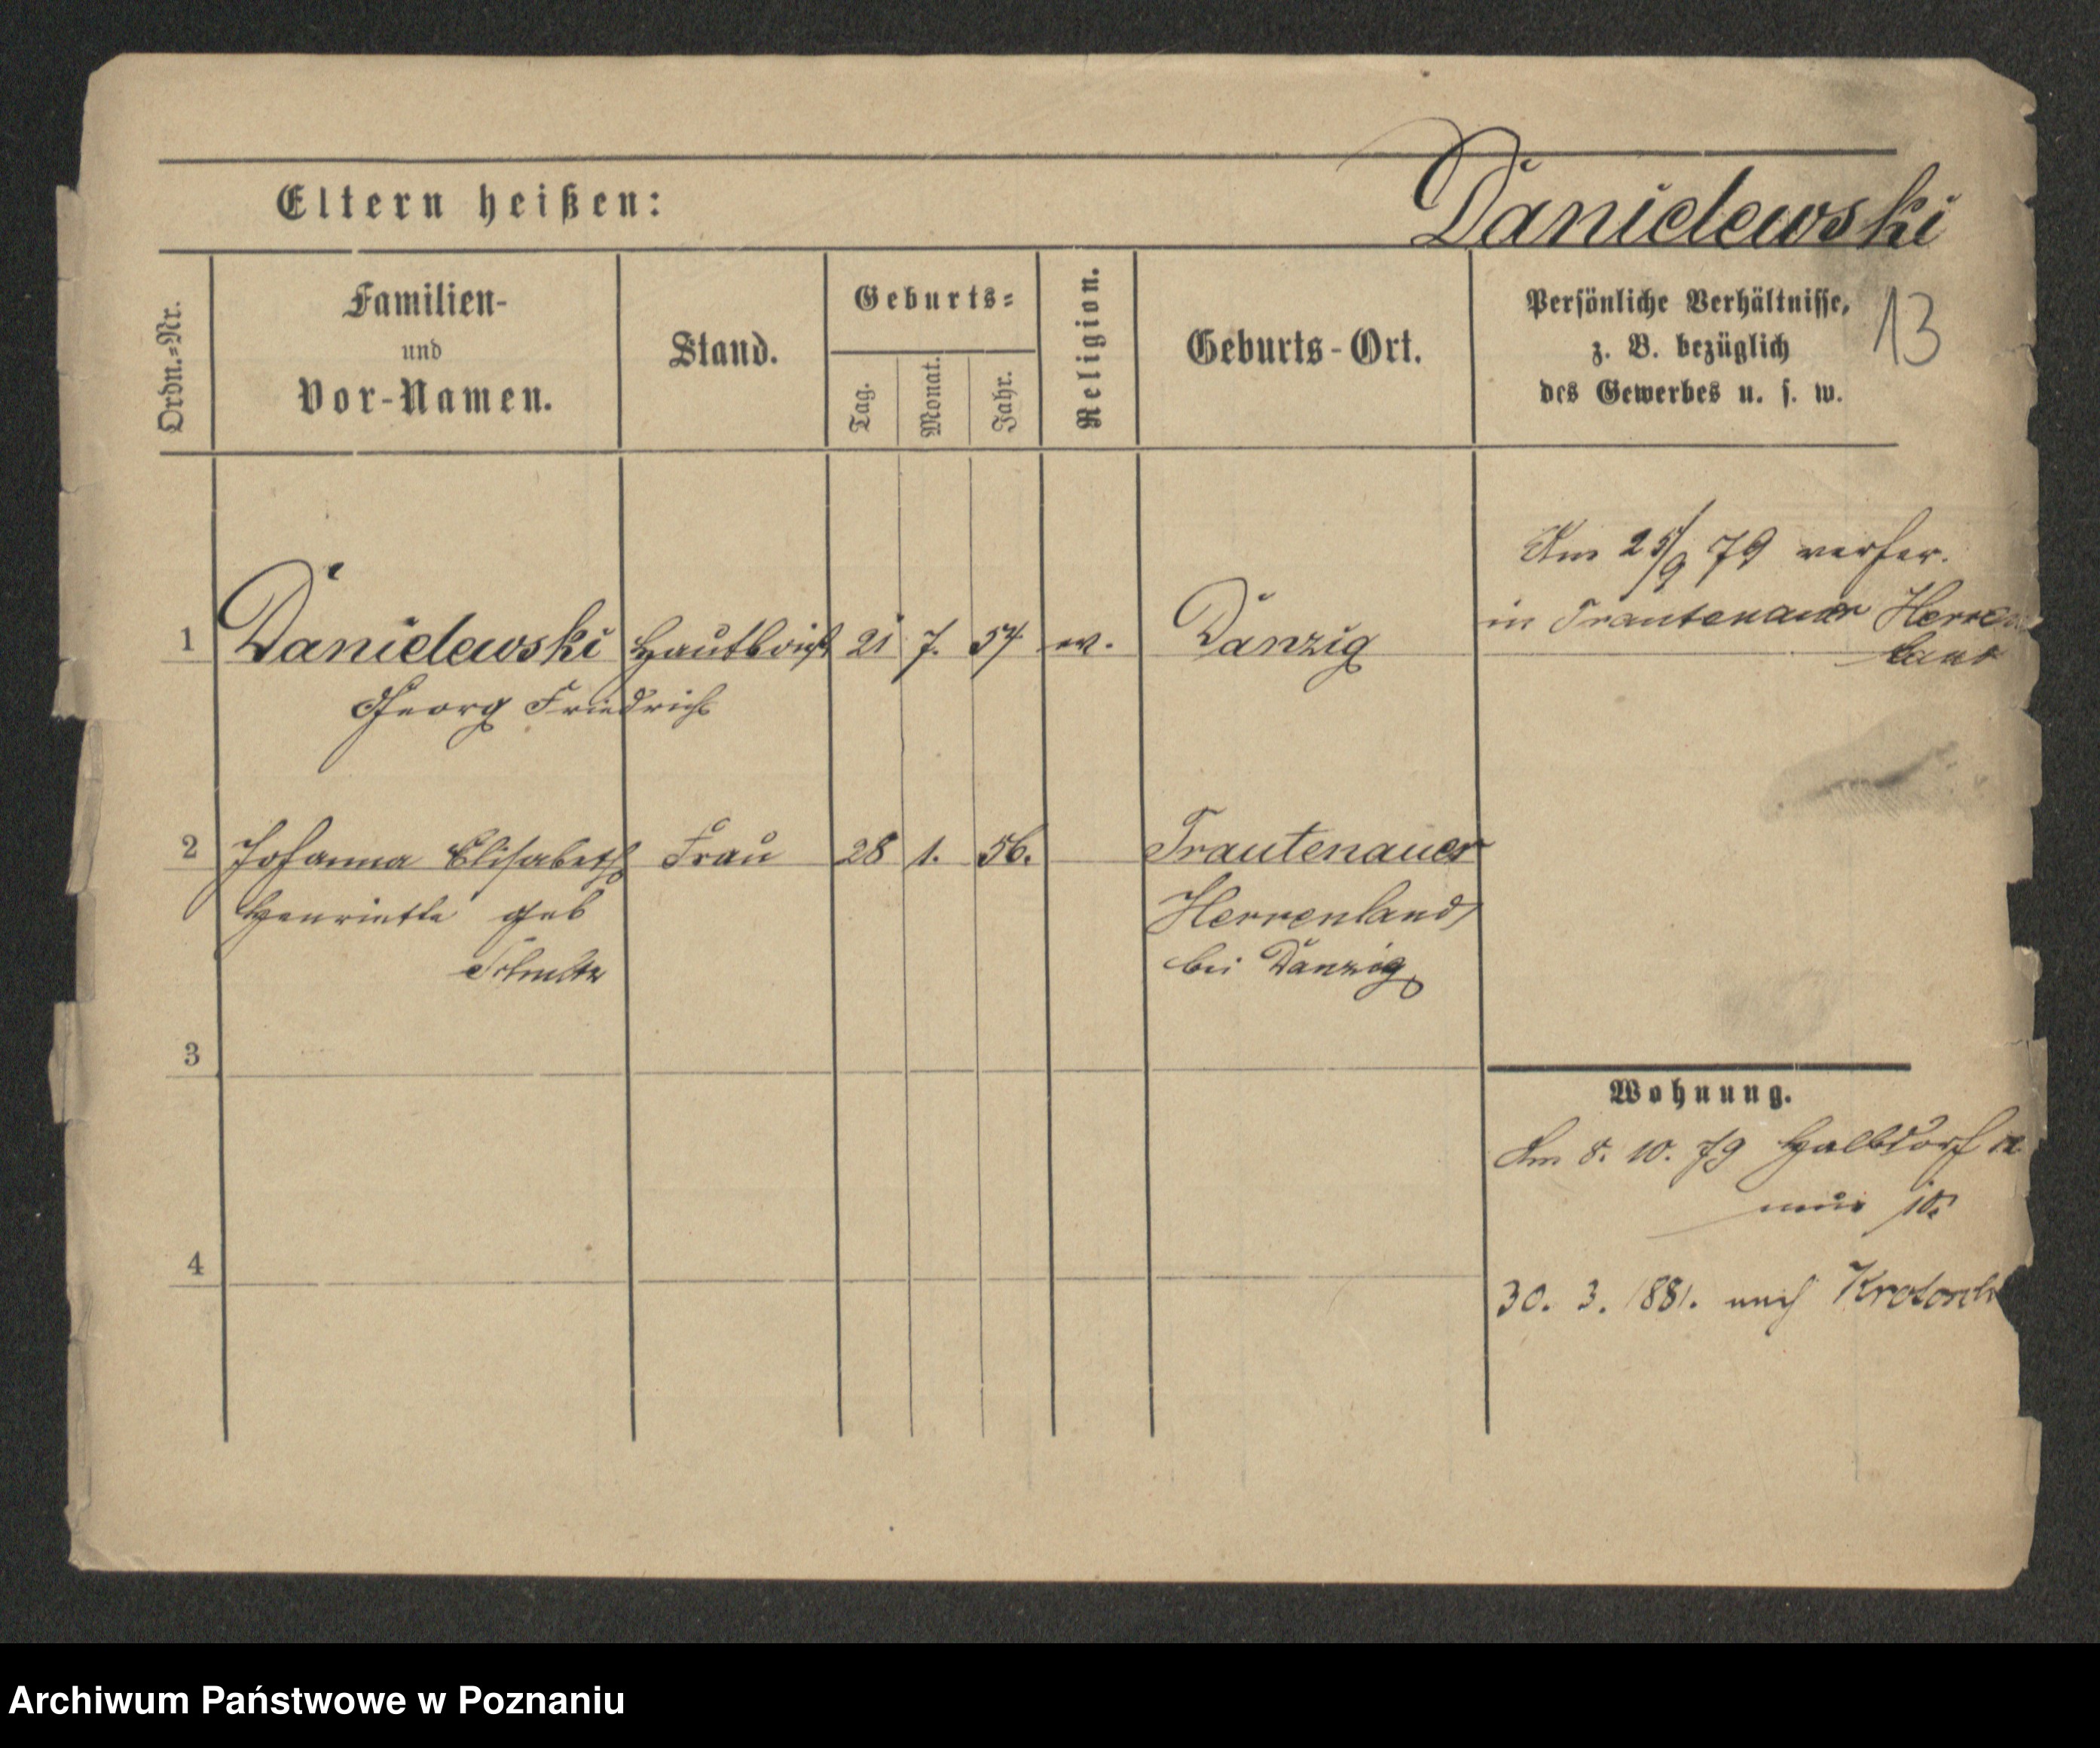 Eltern heißen:
Danielewski
Ordn.=Nr.
Familien-
und
Vor-Namen.
Stand.
Geburts=
Tag.
Monat.
Jahr.
Religion.
Geburts-Ort.
Persönliche Verhältnisse,
z. B. bezüglich
des Gewerbes u. s. w.
13
Am 25/9 79 verher.
in Trautenauer Herren
land
1 Danielewski Hautboist 21 7. 54 ev. Danzig
Georg Friedrich
2 Johanna Elisabeth Frau 28 1. 56. Trautenauer
Henriette geb Herrenland
bei Danzig
3
Wohnung.
Am 8. 10. 79 Halbdorf
4
30. 3. 1881. nach Krotosch
Archiwum Państwowe w Poznaniu